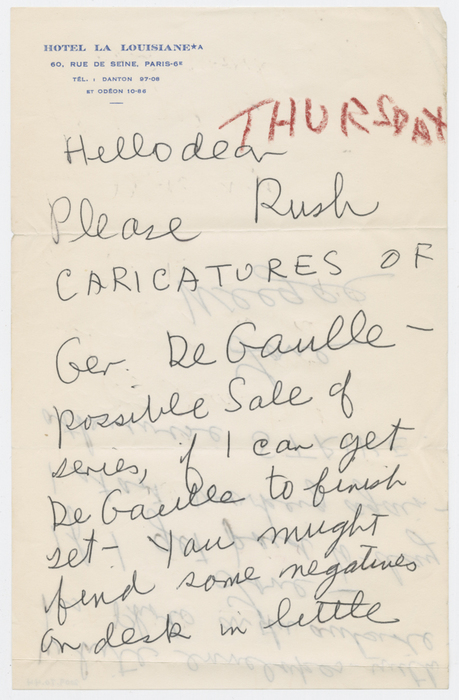 HOTEL LA LOUISIANE★A
60, RUE DE SEINE, PARIS-6E
TÉL. : DANTON 97-08
ET ODÉON 10-86
THURSDAY
Hello dear
Please Rush
CARICATURES OF
Ger. De Gaulle —
possible Sale of
series, if I can get
De Gaulle to finish
set - You mught
find some negatives
on desk in little